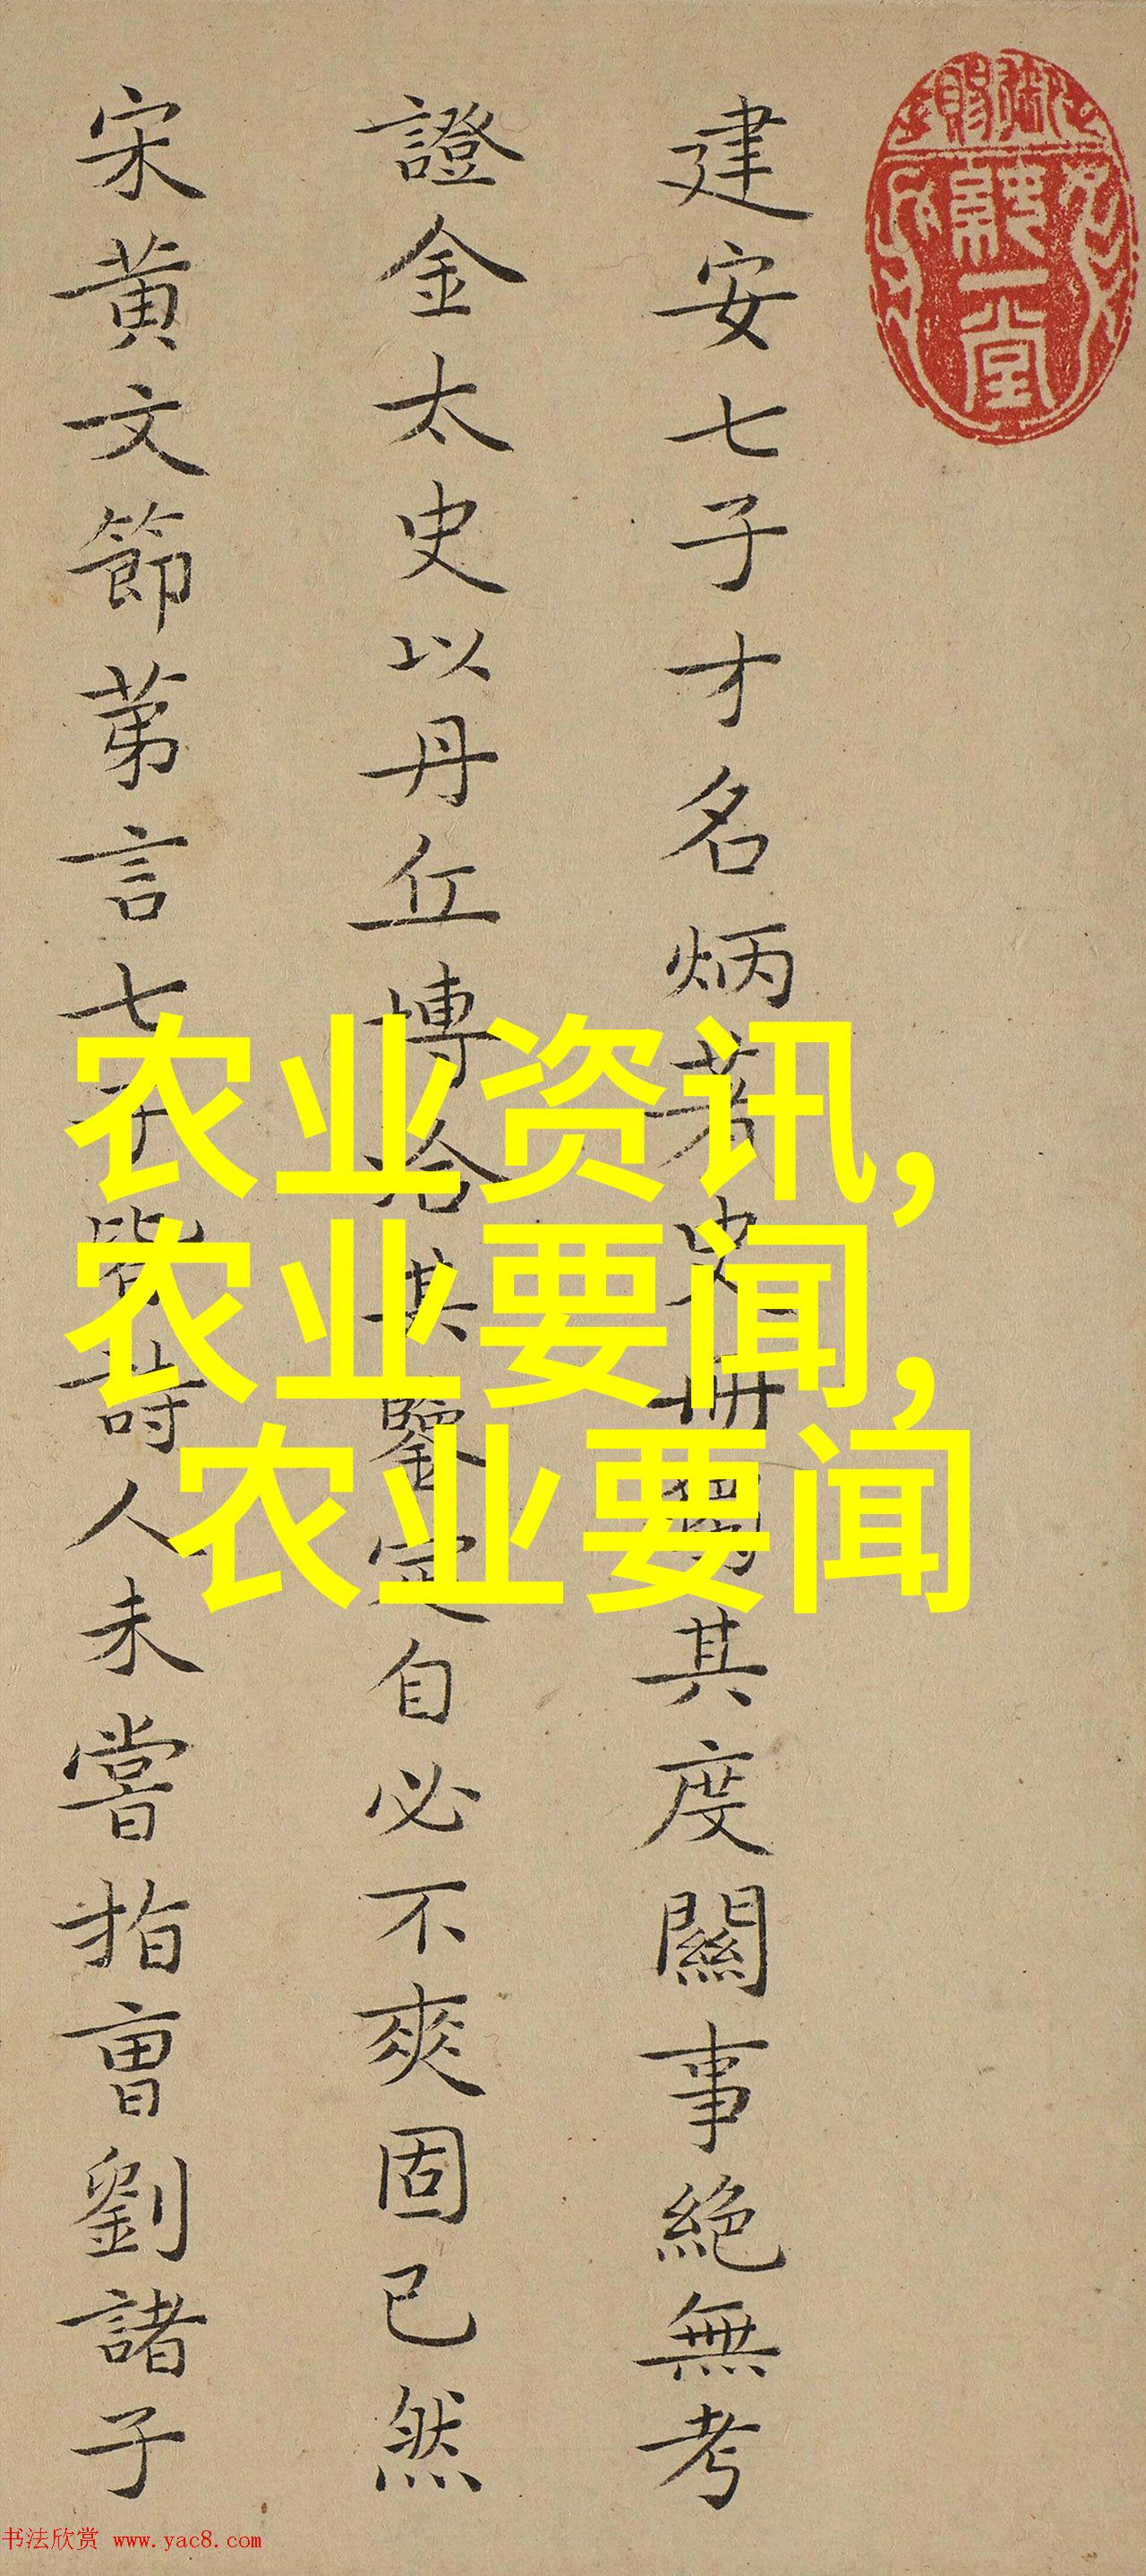 建安七子才名炳著史冊獨其度關事絕無考
證金太史以丹丘博洽其鑒定自必不爽固已然
宋黃文節苐言七子皆詩人未嘗指曹劉諸子
農业资讯,
农业要闻,
农业要闻
书法欣赏 www.yac8.com